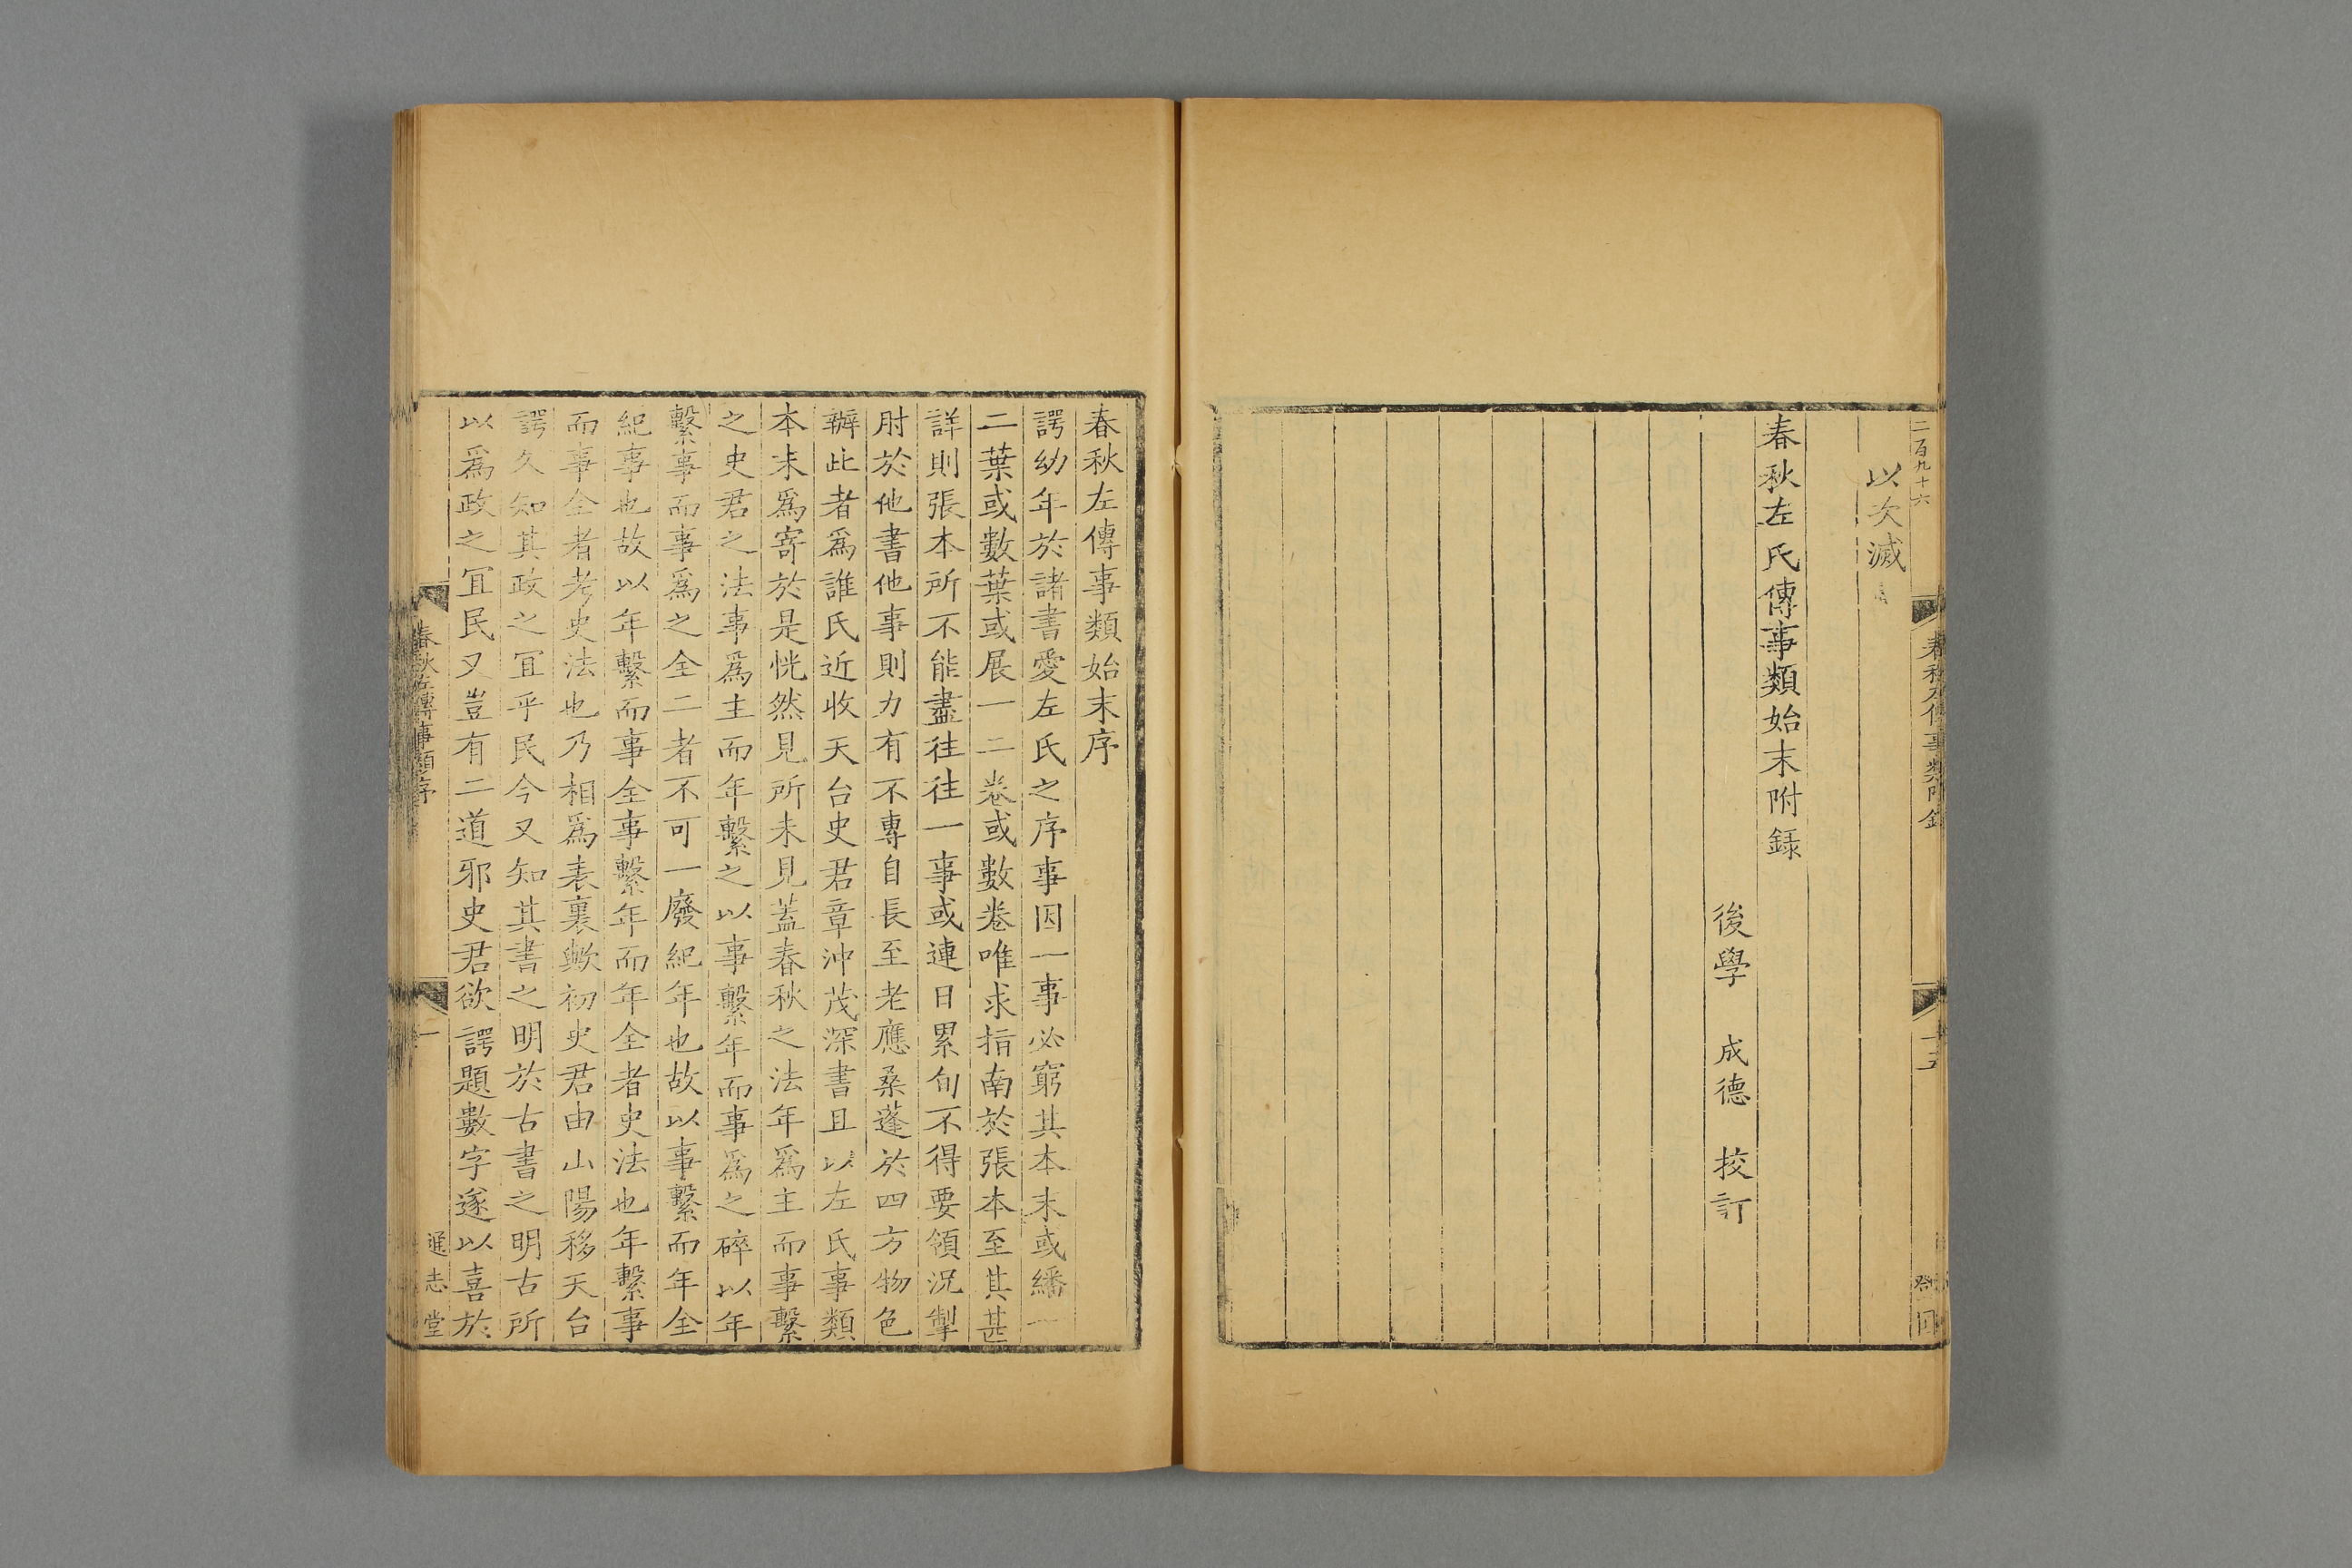 二百九十六
以次滅
春秋左氏傳事類始末附録
後學 成德 挍訂
春秋左傳事類始末序
諤幼年於諸書愛左氏之序事因一事必窮其本末或繙一
二葉或數葉或展一二卷或數卷唯求指南於張本至其甚
詳則張本所不能盡往往一事或連日累旬不得要領況掣
肘於他書他事則力有不專自長至老應桑蓬於四方物色
辦此者爲誰氏近收天台史君章沖茂深書且以左氏事類
本末爲寄於是恍然見所未見蓋春秋之法年爲主而事繫
之史君之法事爲主而年繫之以事繫年而事爲之碎以年
繫事而事爲之全二者不可一廢紀年也故以事繫而年全
紀事也故以年繫而事全事繫年而年全者史法也年繫事
而事全者考史法也乃相爲表裏歟初史君由山陽移天台
諤久知其政之冝乎民今又知其書之明於古書之明古所
以爲政之冝民又豈有二道邪史君欲諤題數字遂以喜於
春秋左傳事類序
一
通志堂